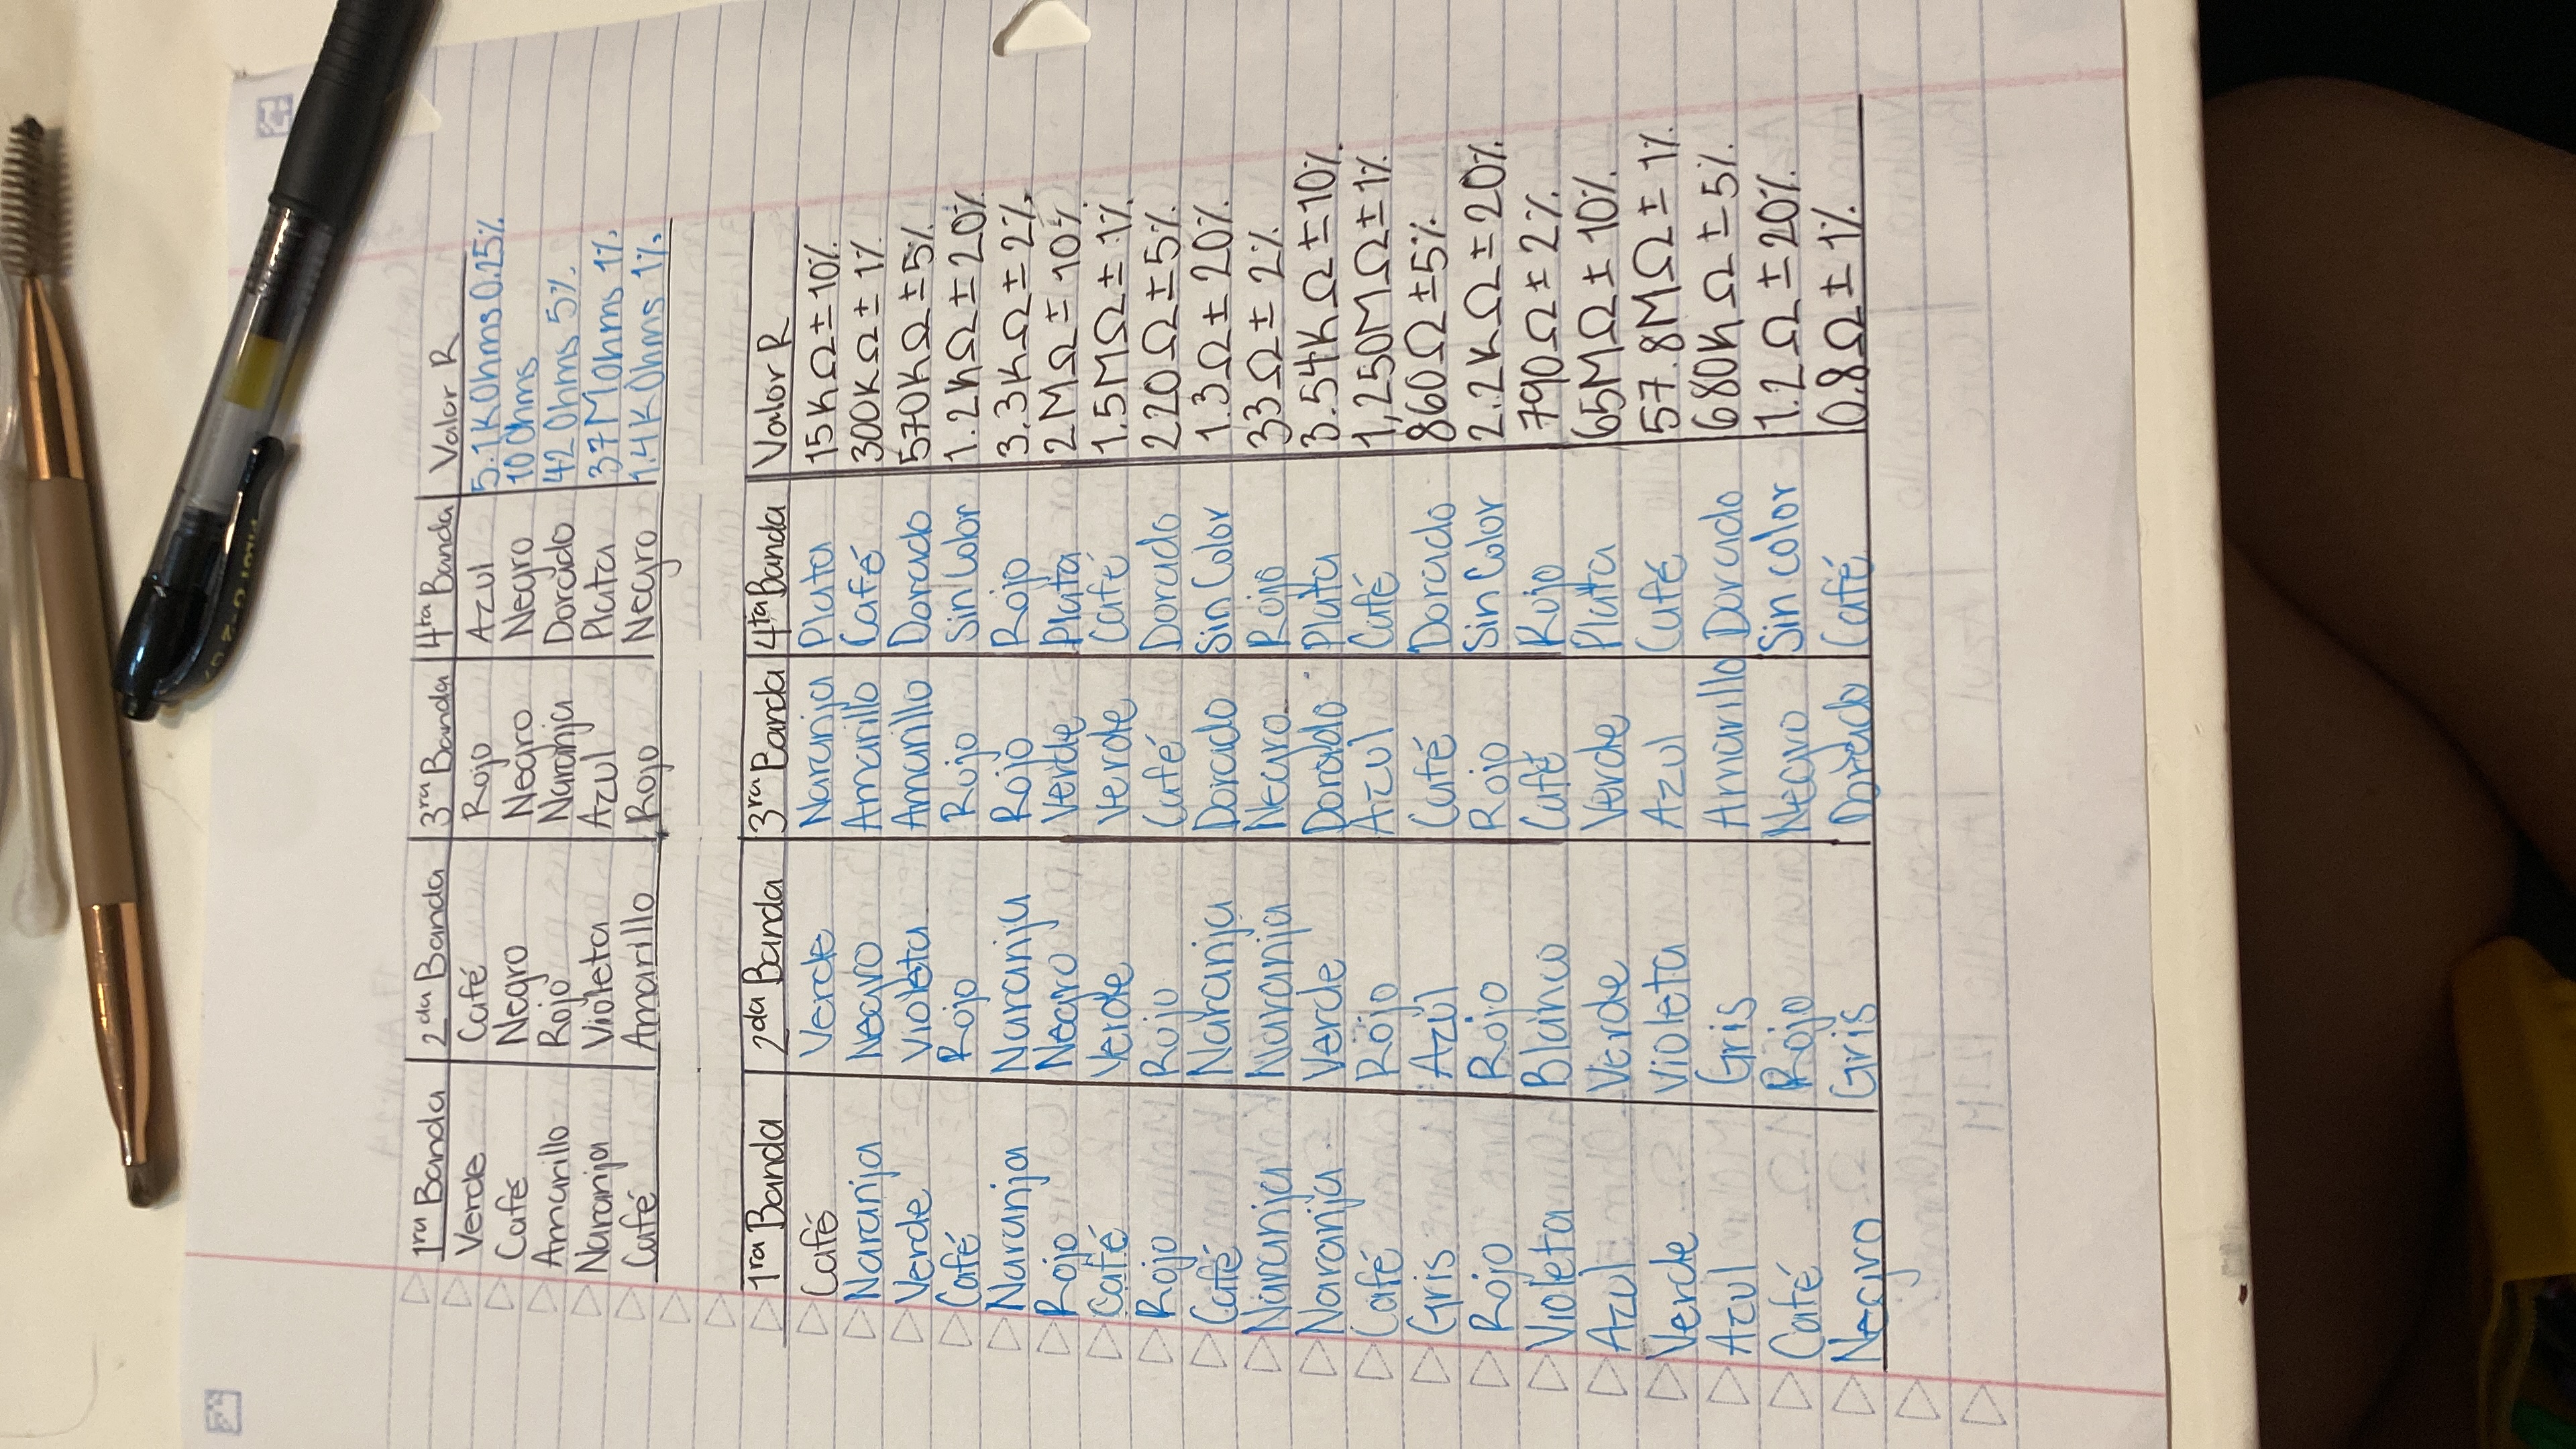 1ra Banda 2da Banda 3ra Banda 4ta Banda Valor R
Verde Café Rojo Azul 5.1KOhms 0.25%
Café Negro Negro Negro 10 Ohms
Amarillo Rojo Naranja Dorado 42 Ohms 5%
Naranja Violeta Azul Plata 37 Mohms 1%
Café Amarillo Rojo Negro 1.4 K Ohms 1%
1ra Banda 2da Banda 3ra Banda 4ta Banda Valor R
Café Verde Naranja Plata 15KΩ±10%
Naranja Negro Amarillo Café 300KΩ±1%
Verde Violeta Amarillo Dorado 570KΩ±5%
Café Rojo Rojo Sin Color 1.2KΩ±20%
Naranja Naranja Rojo Rojo 3.3KΩ±2%
Rojo Negro Verde Plata 2MΩ±10%
Café Verde Verde Café 1.5MΩ±1%
Rojo Rojo Café Dorado 220Ω±5%
Café Naranja Dorado Sin Color 1.3Ω±20%
Naranja Naranja Negro Rojo 33Ω±2%
Naranja Verde Dorado Plata 3.54KΩ±10%
Café Rojo Azul Café 1,250MΩ±1%
Gris Azul Café Dorado 860Ω±5%
Rojo Rojo Rojo Sin Color 2.2KΩ±20%
Violeta Blanco Café Rojo 790Ω±2%
Azul Verde Verde Plata 65MΩ±10%
Verde Violeta Azul Café 57.8MΩ±1%
Azul Gris Amarillo Dorado 680KΩ±5%
Café Rojo Negro Sin color 1.2Ω±20%
Negro Gris Dorado Café 0.8Ω±1%